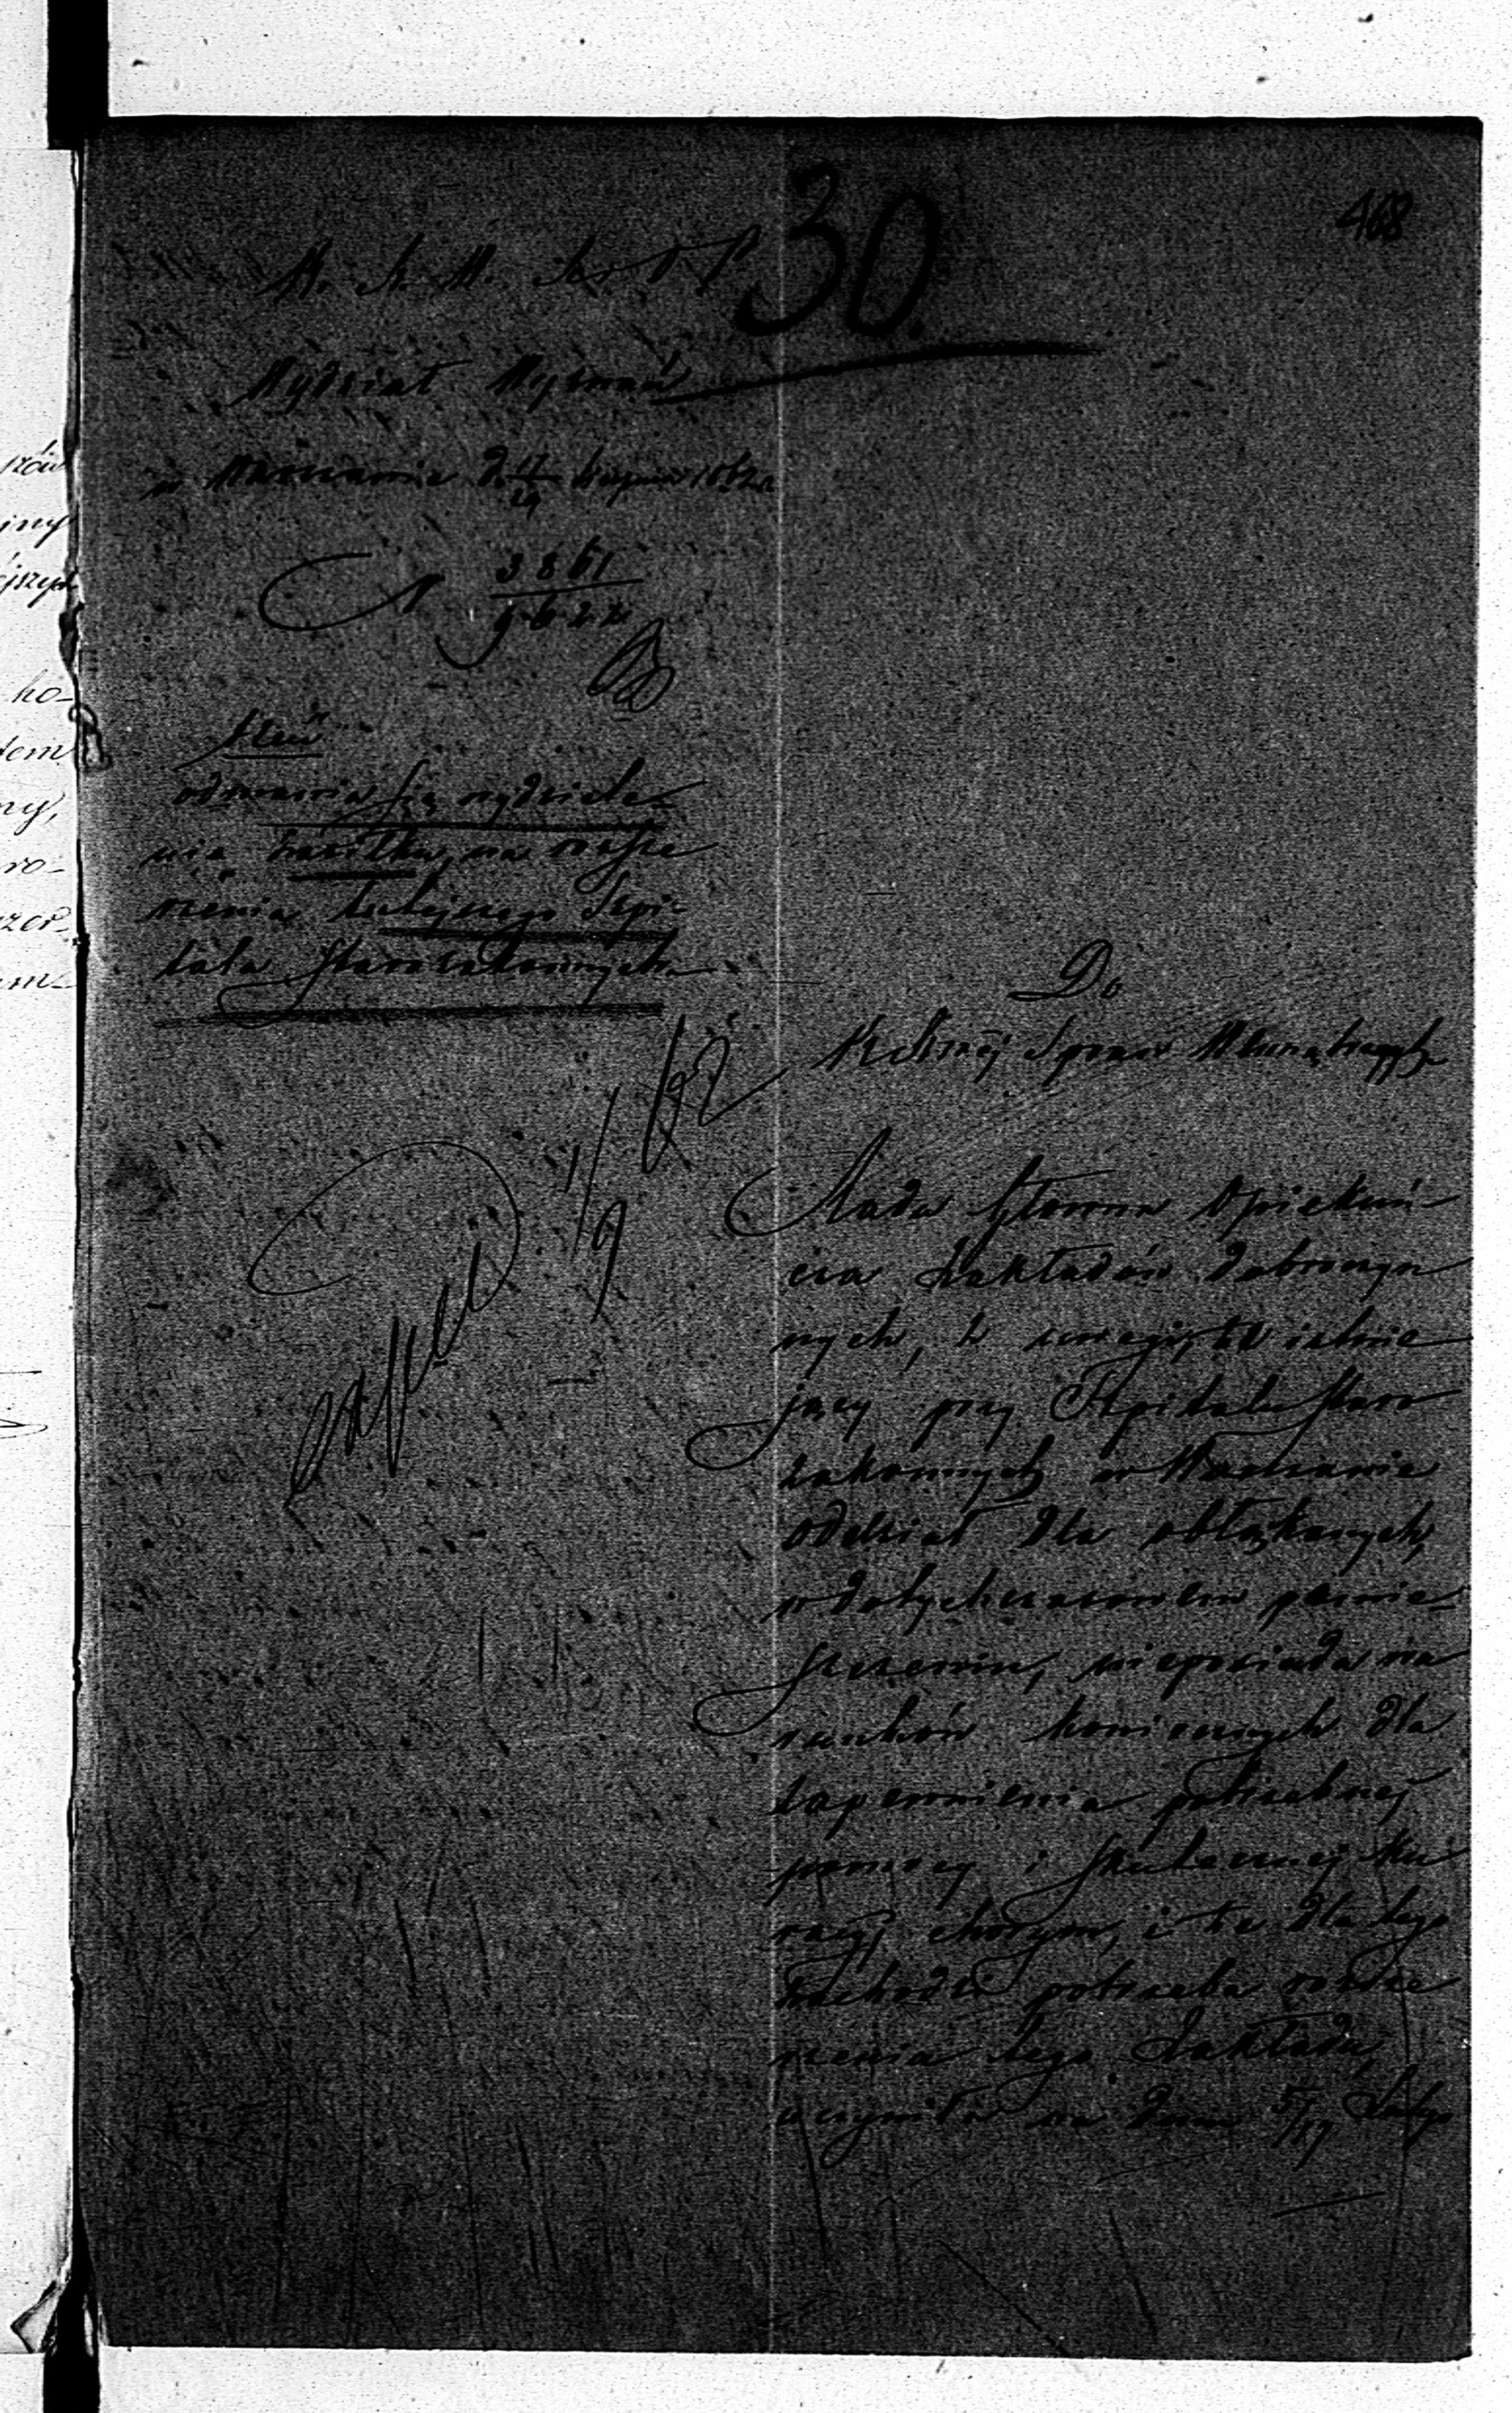 30.
468
Wydział Wyznań
w Warszawie d. 17/29 Sierpnia 1862 r.
N 3861/9622
odmawia się wydziele-
nia zasiłku, na rozsze
rzenia tutejszego Szpi-
tala Starozakonnych
Do
Spraw Wewnętrznych
Rada Główna Opiekuń-
cza Zakładów dobroczyn
nych, z uwagi, że istnie
jący przy Szpitalu Staro
zakonnych w Warszawie
oddział dla obłąkanych,
w dotychczasowem pomie-
szczeniu, nieposiada wa
runków koniecznych dla
zapewnienia potrzebnej
pomocy i skutecznej ku
racyi chorym, i że dla tego
zachodzi potrzeba rozsze
rzenia tego Zakładu,
uczyniła na dniu 5/17 Lutego